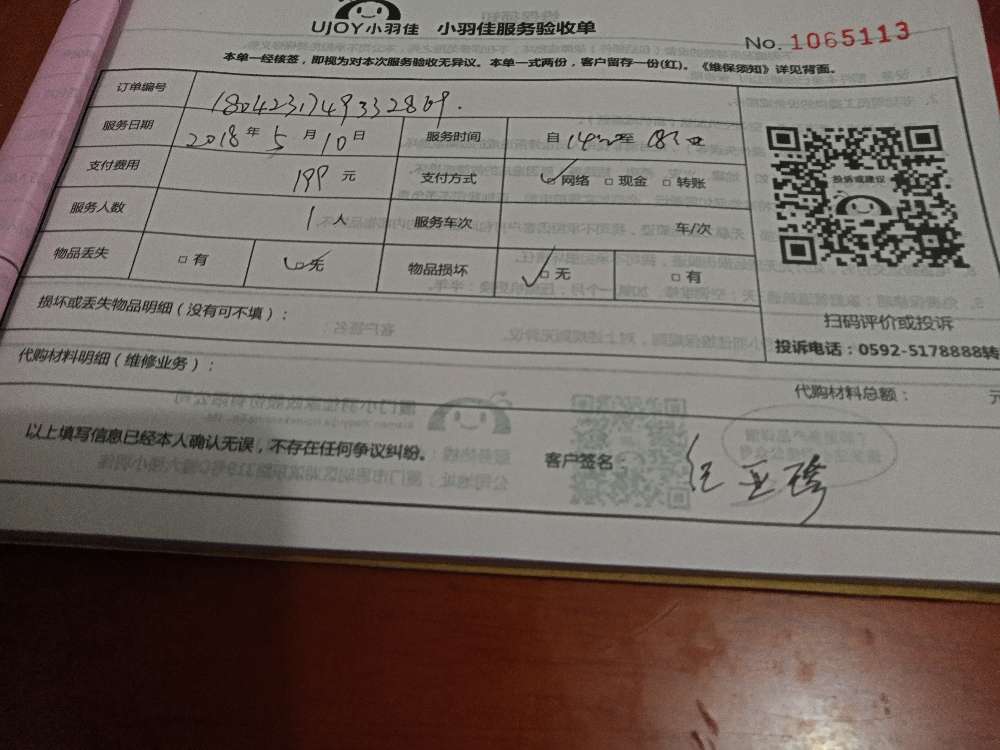 UJOY小羽佳 小羽佳服务验收单
No. 1065113
本单一经核签，即视为对本次服务验收无异议。本单一式两份，客户留存一份(红)。《维保须知》详见背面。
订单编号 180423174933286
服务日期 2018年5月10日 服务时间 自14:00至18:00
支付费用 199元 支付方式 ✓网络 □现金 □转账
服务人数 1人 服务车次 车/次
物品丢失 □有 ✓无 物品损坏 ✓□无 □有
投诉或建议
扫码评价或投诉
投诉电话：0592-5178888转
损坏或丢失物品明细（没有可不填）：
代购材料明细（维修业务）：
代购材料总额： 元
以上填写信息已经本人确认无误，不存在任何争议纠纷。
客户签名